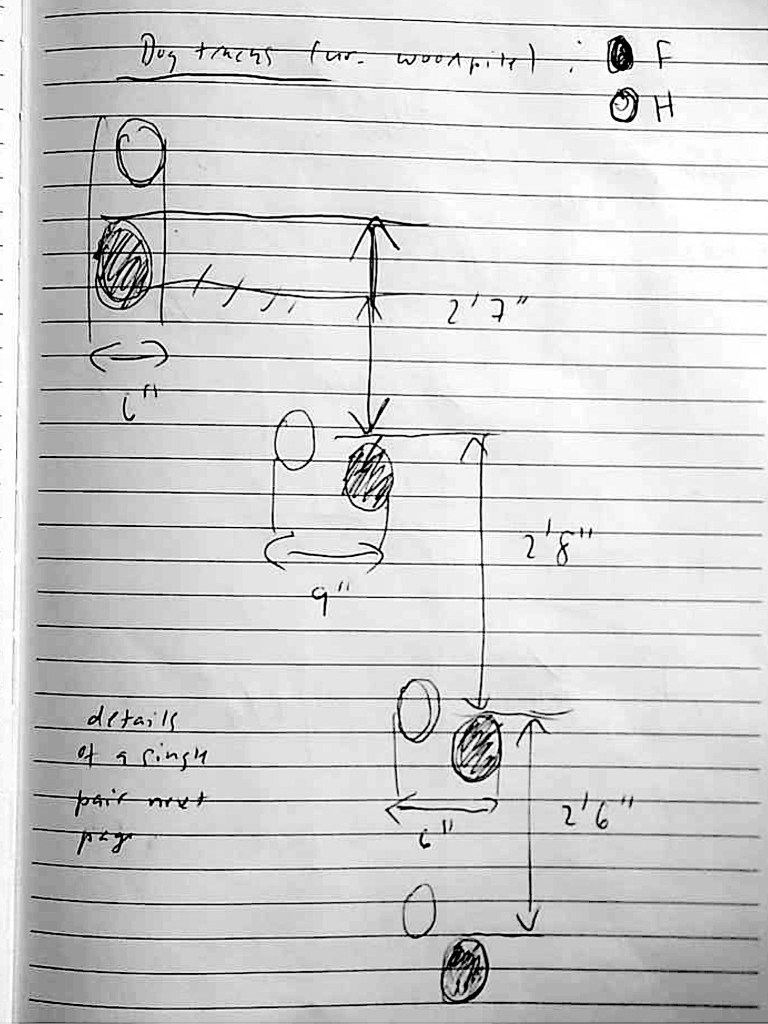 Dog tracks (nr. woodpile) : F
H
2'7"
6"
2'8"
9"
details
of a single
pair next
page
2'6"
6"